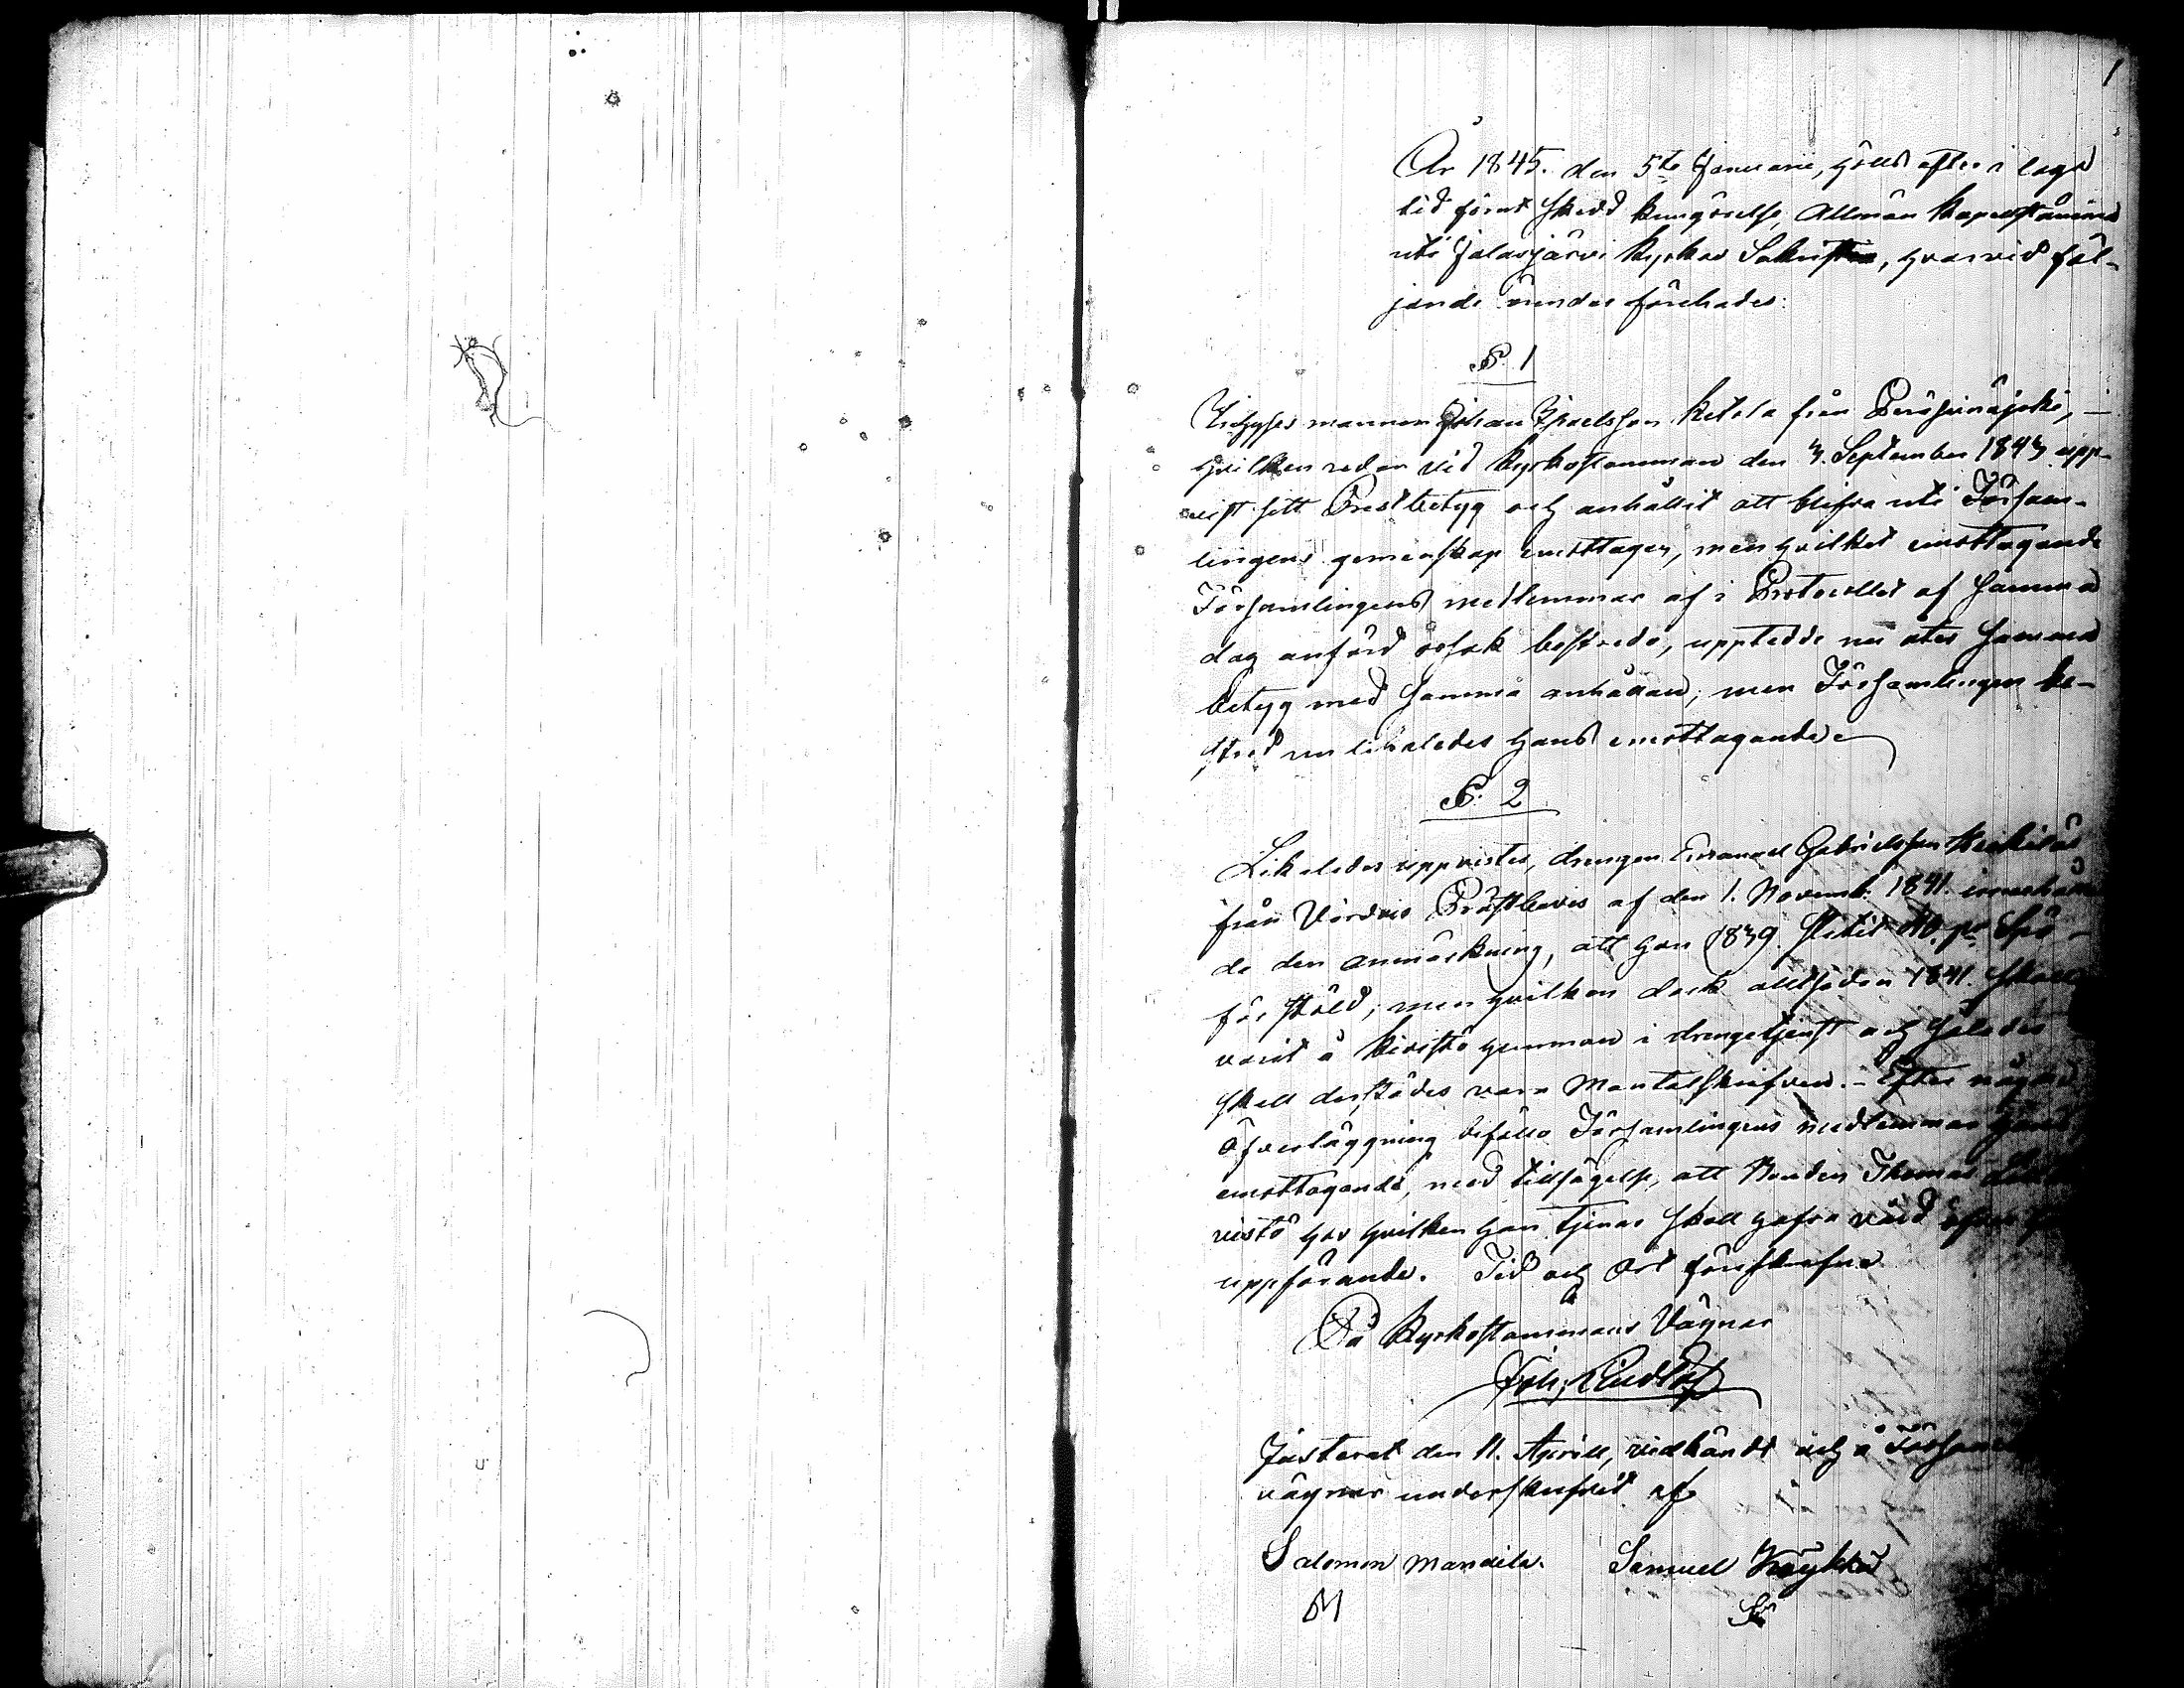 1
År 1845. den 5te Januarii, hölls efter i laga
tid förut skedd kungörelse, Allmän Kapellstämma
uti Jalasjärvi Kyrkas Sakristia, hvarvid föl-
jande ärender förehades:
§. 1
mannen Johan Ketola från Peräseinäjoki, —
hvilken redan vid Kyrkostämman den 3. September 1843 upp-
vist sitt Prestbetyg och anhållit att blifva uti Försam-
lingens gemenskap emottagen, men hvilket emottagande
Församlingens medlemmar af i Protocollet af samma
dag anförd orsak bestredo, uppteddе nu åter samma
betyg med samma anhållan; men Församlingen be-
stred nu likaledes hans emottagande.
§. 2
Likaledes uppvistes, drengen Emanuel Gabrielsson
från Virdois Prästbevis af den 1. Novemb. 1841. innehållan
de den anmärkning, att han 1839. slitit 40. pr Spö
för stöld; men hvilken dock alltsedan 1841. skall
varit å Kivistö hemman i drengetjenst och således
skall derstädes vara Mantalskrifven. – Efter någon
öfverläggning biföllo Församlingens medlemmar hans
emottagande, med tillsägelse, att Bonden Thomas
vistö hos hvilken han tjenar skall hafva vård öfver
uppförande. Tid och Ort förskrefne
På Kyrkostämmans Vägnar
Joh:
Justerat den 11. Aprill, vidkändt och å
vägnar underskrifvit af
Salomon Mandila. Samuel Köykkä
SM SK